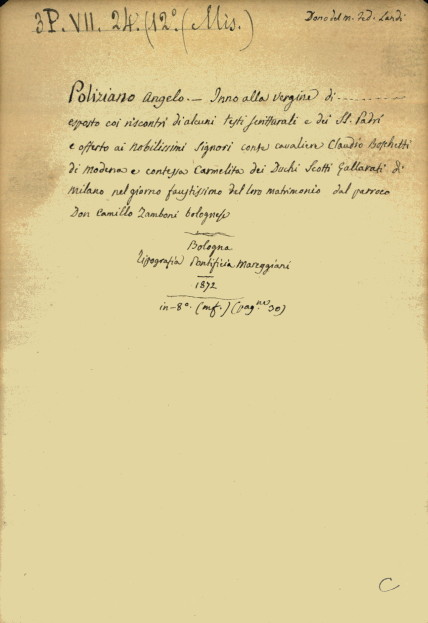 3P. VII. 24. (12º. (Mis.)
Dono del n. Fed. Lardi
Poliziano Angelo. — Inno alla vergine di ----------
esposto coi riscontri di alcuni testi scritturali e dei SS. Padri
e offerto ai nobilissimi signori conte cavaliere Claudio Boschetti
di Modena e contessa Carmelita dei Duchi Scotti Gallarati di
Milano nel giorno faustissimo del loro matrimonio dal parroco
Don Camillo Zamboni bolognese
Bologna
Tipografia Pontificia Mareggiani
1872
in-8º. (mf.) (pag.ne 30)
C